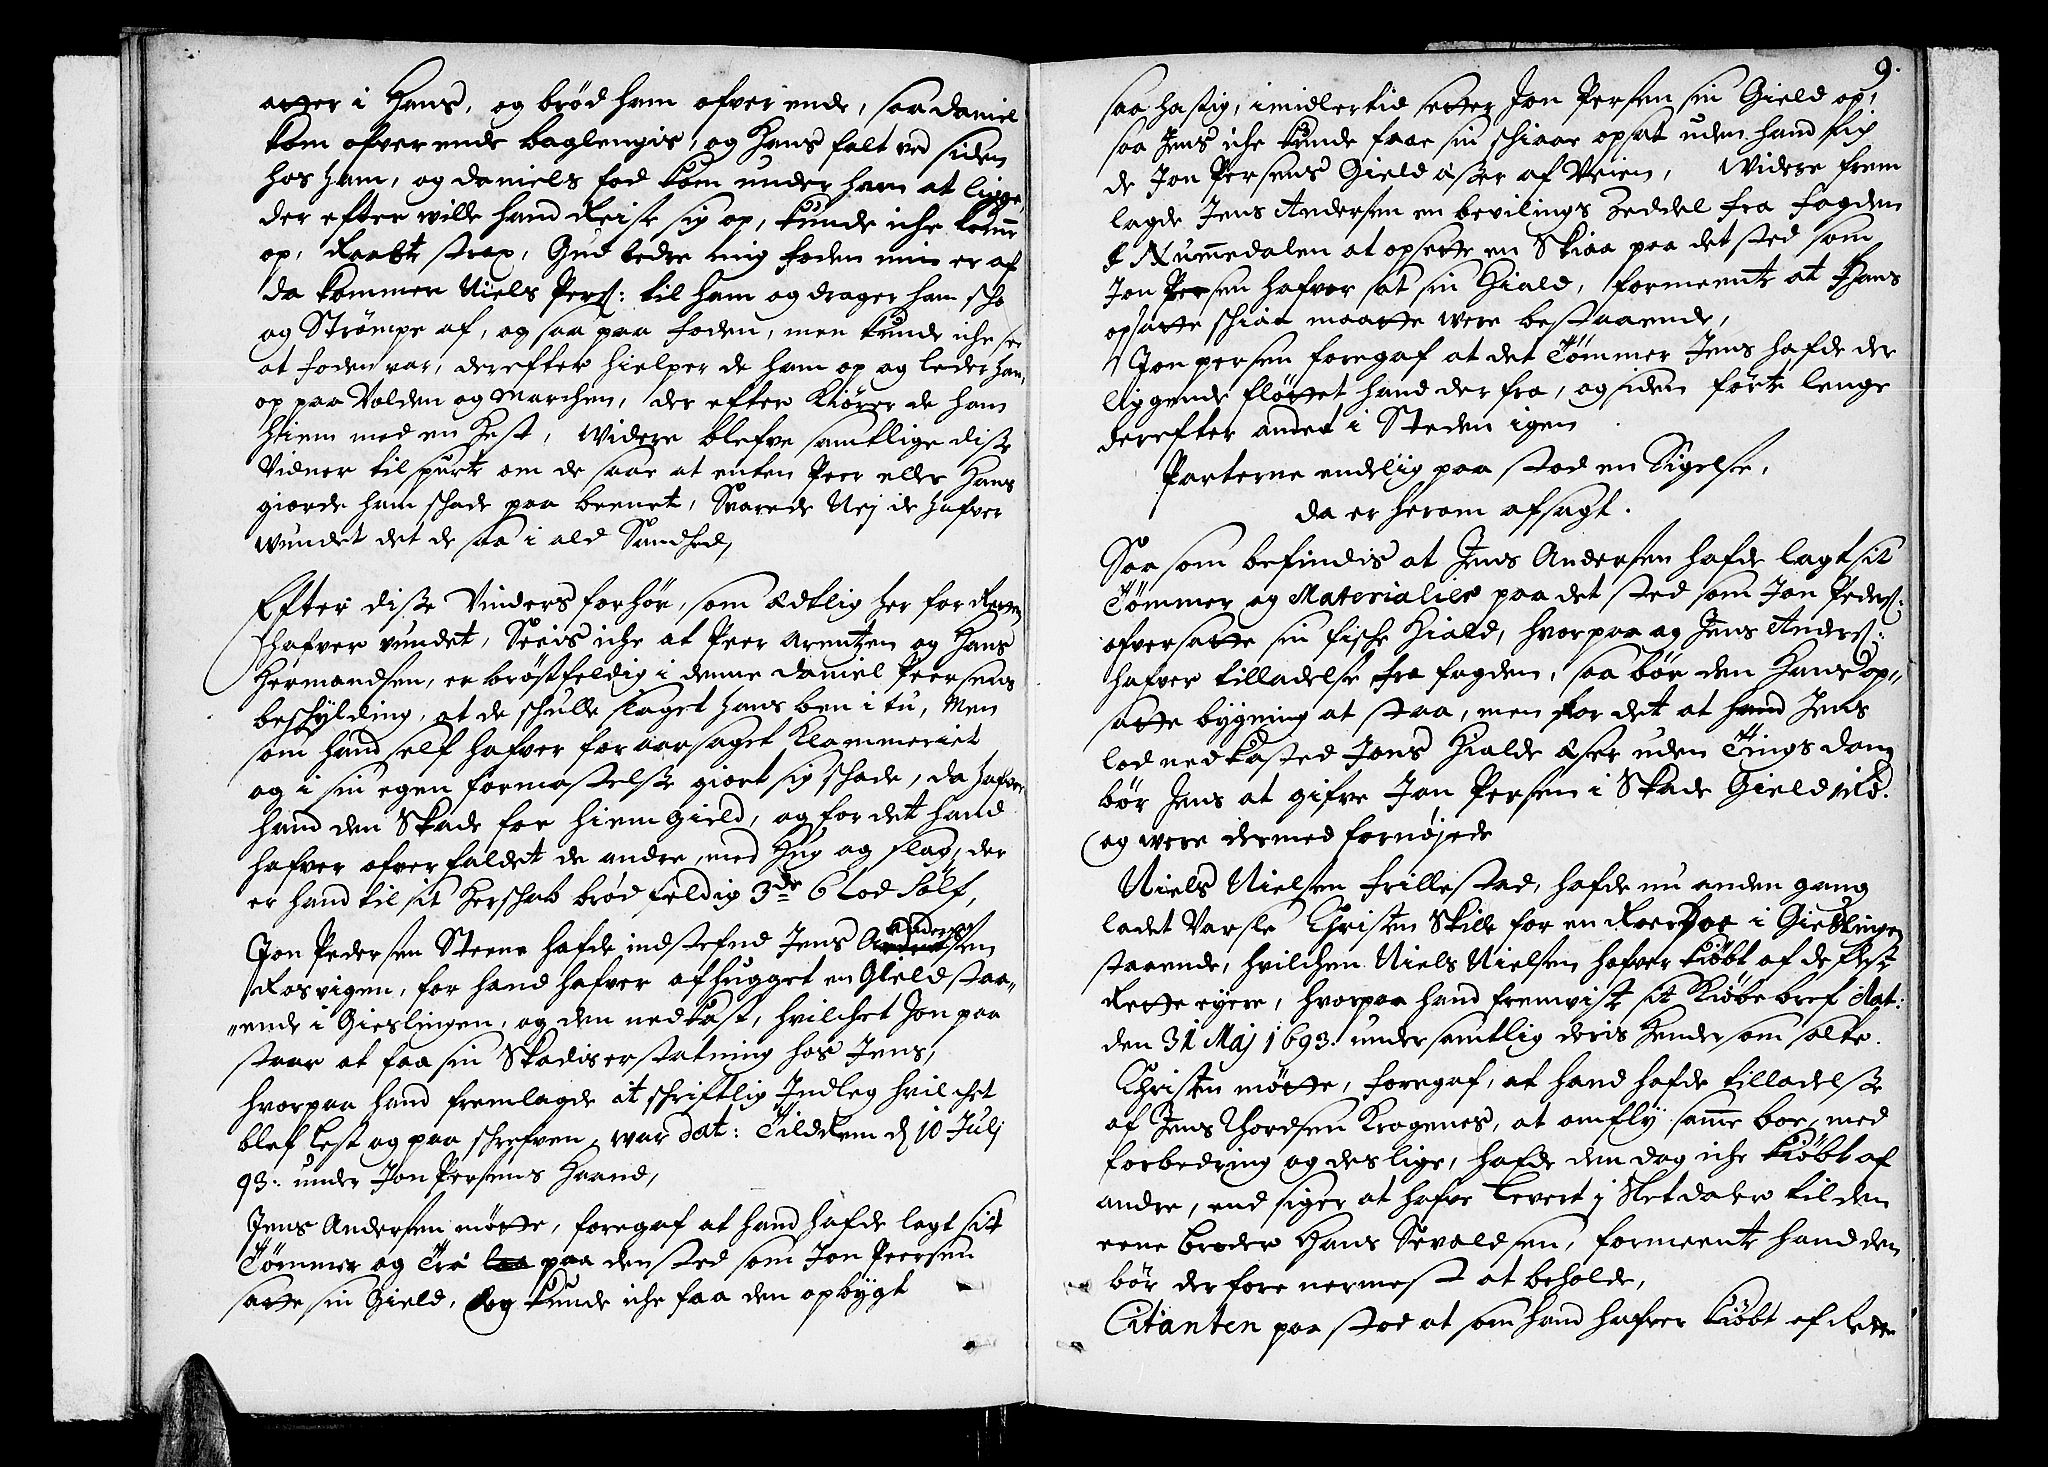 atter i Hans, og brød ham ofver ende, saa Daniel
kom ofver ende baglengis, og Hans falt ved siden
hos ham, og Daniels fod kom under ham at ligge,
der efter wille hand Reise sig op, kunde iche komme
op, Raabte strax, Gud bedre mig foden min er af
da kommer Niels Pers: til ham og drager ham sko
og Strømpe af, og saa paa foden, men kunde iche see
at foden var, derefter hielper de ham op og leder ham
op paa Volden og Marchen, der efter Kiører de ham
hiem med en Hest, Widere blefve samtlige diße
Vidner tilspurte om de saae at enten Peer eller Hans
giorde ham schade paa beenet, Svarede Nej de hafver
wundet det de saa i ald Sandhed,
Efter diße Vinders forhør, som Edtlig her for Retten
hafver vundet, Seeis iche at Peer Arentzen og Hans
Hermandsen, er brøstfeldig i denne Daniel Peersens
beschylding, at de schulle slaget hans ben i tu, Men
som hand self hafver foraarsaget Klammeriet
og i sin egen formastelse giort sig schade, da hafver
hand den Skade for hiemgield, og for det hand
hafver ofverfaldet de andre med Hug og slag, der
er hand til sit Herschab brødfeldig 3de 6 Lod Sølf,
Jon Pedersen Steene hafde indstefnd Jens Andersen
Rosvigen, for hand hafver afhugget en Gield staa-
-ende i Gieslingen, og den nedkast, hvilchet Jon paa
staar at faa sin Skadiserstatning hos Jens,
hvorpaa hand fremlagde it schriftlig Indleg hvilchet
blef lest og paaschrefven, war dat: Tilddrem d 10 Julj
93. under Jon Persens Haand,
Jens Andersen møtte, foregaf at hand hafde lagt sit
Tømmer og Træ paa den sted som Jon Peersen
satte sin Gield, og kunde iche faa den opbygt
9.
saa hastig, imidlertid setter Jon Persen sin Gield op,
saa Jens iche kunde faae sin schiaae opsat uden hand fich
de Jon Persens Gield Aßer af Veien, Widere frem
lagde Jens Andersen en bevilings Zeddel fra fogden
i Nummedalen at opsette en Skiaa paa det sted som
Jon Persen hafver sat sin Hiald, formeente at Hans
opsatte schiaa maatte were bestaaende,
Jon persen foregaf at det Tømmer Jens hafde der
liggende fløttet hand der fra, og siden førte lenge
derefter andet i Steden igen
Parterne endelig paa stod en Sigelse,
da er herom afsagt.
Saa som befindis at Jens Andersen hafde lagt sit
Tømmer og Materialier paa det sted som Jon Peders:
ofversatte sin fische Hiald, hvorpaa og Jens Anders:
hafver tilladelse fra fogden, saa bør den Hans op-
satte bygning at staa, men for det at hand Jens
lod nedkasted Jons Hialde Aser uden Tings dom
bør Jens at gifve Jon Persen i Skade Gield 1 Rd.
og were dermed fornøjede
Niels Nielsen Frillestad, hafde nu anden gang
ladet Varsle Christen Skille for en Roer Boe i Gieslingen
staaende, hvilchen Niels Nielsen hafver kiøbt af de
Rette eyere, hvorpaa hand fremviste sit Kiøbebref dat:
den 31 Maj 1693. under samtlig deris Hender som solte.
Christen møtte, foregaf, at hand hafde tilladelße
af Jens Thordsen Kragenes, at omfly samme boe, med
forbedring og deslige, hafde den dog iche kiøbt af
andre, end siger at hafve levert j Sletdaler til den
eene Broder Hans Sevaldsen, formeente hand den
bør derfore nermest at beholde,
Citanten paa stod at som hand hafver kiøbt af Rette